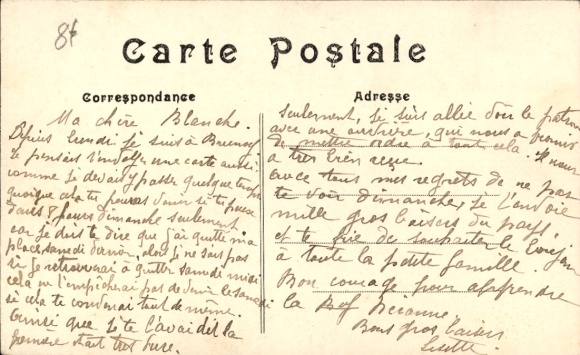 8f
Carte Postale
Correspondance
Adresse
Ma chère Blanche.
Depuis lundi je suis à
je pensais une carte
comme je devais y passer quelque temps
quoique cela tu pourras venir si tu peux
dans 8 jours dimanche seulement
car je dois te dire que j'ai quitté ma
place samedi dernier, alors je ne sais pas
si je retournerai à quitter samedi midi
cela ne t'empêcherai pas de venir le samedi
si cela te convenait tout de même.
que si te l'avai dit la
première était très
seulement, je suis allée voir le patron
avec une ouvrière, qui nous a promis
de mettre ordre à tout cela. Il nous
a très bien reçue
avec tous mes regrets de ne pas
te voir dimanche, je t'envoie
mille gros baisers du pays
et te prie de souhaiter le bonjour
à toute la petite famille.
Bon courage pour apprendre
la
Bons gros baisers
Lisette